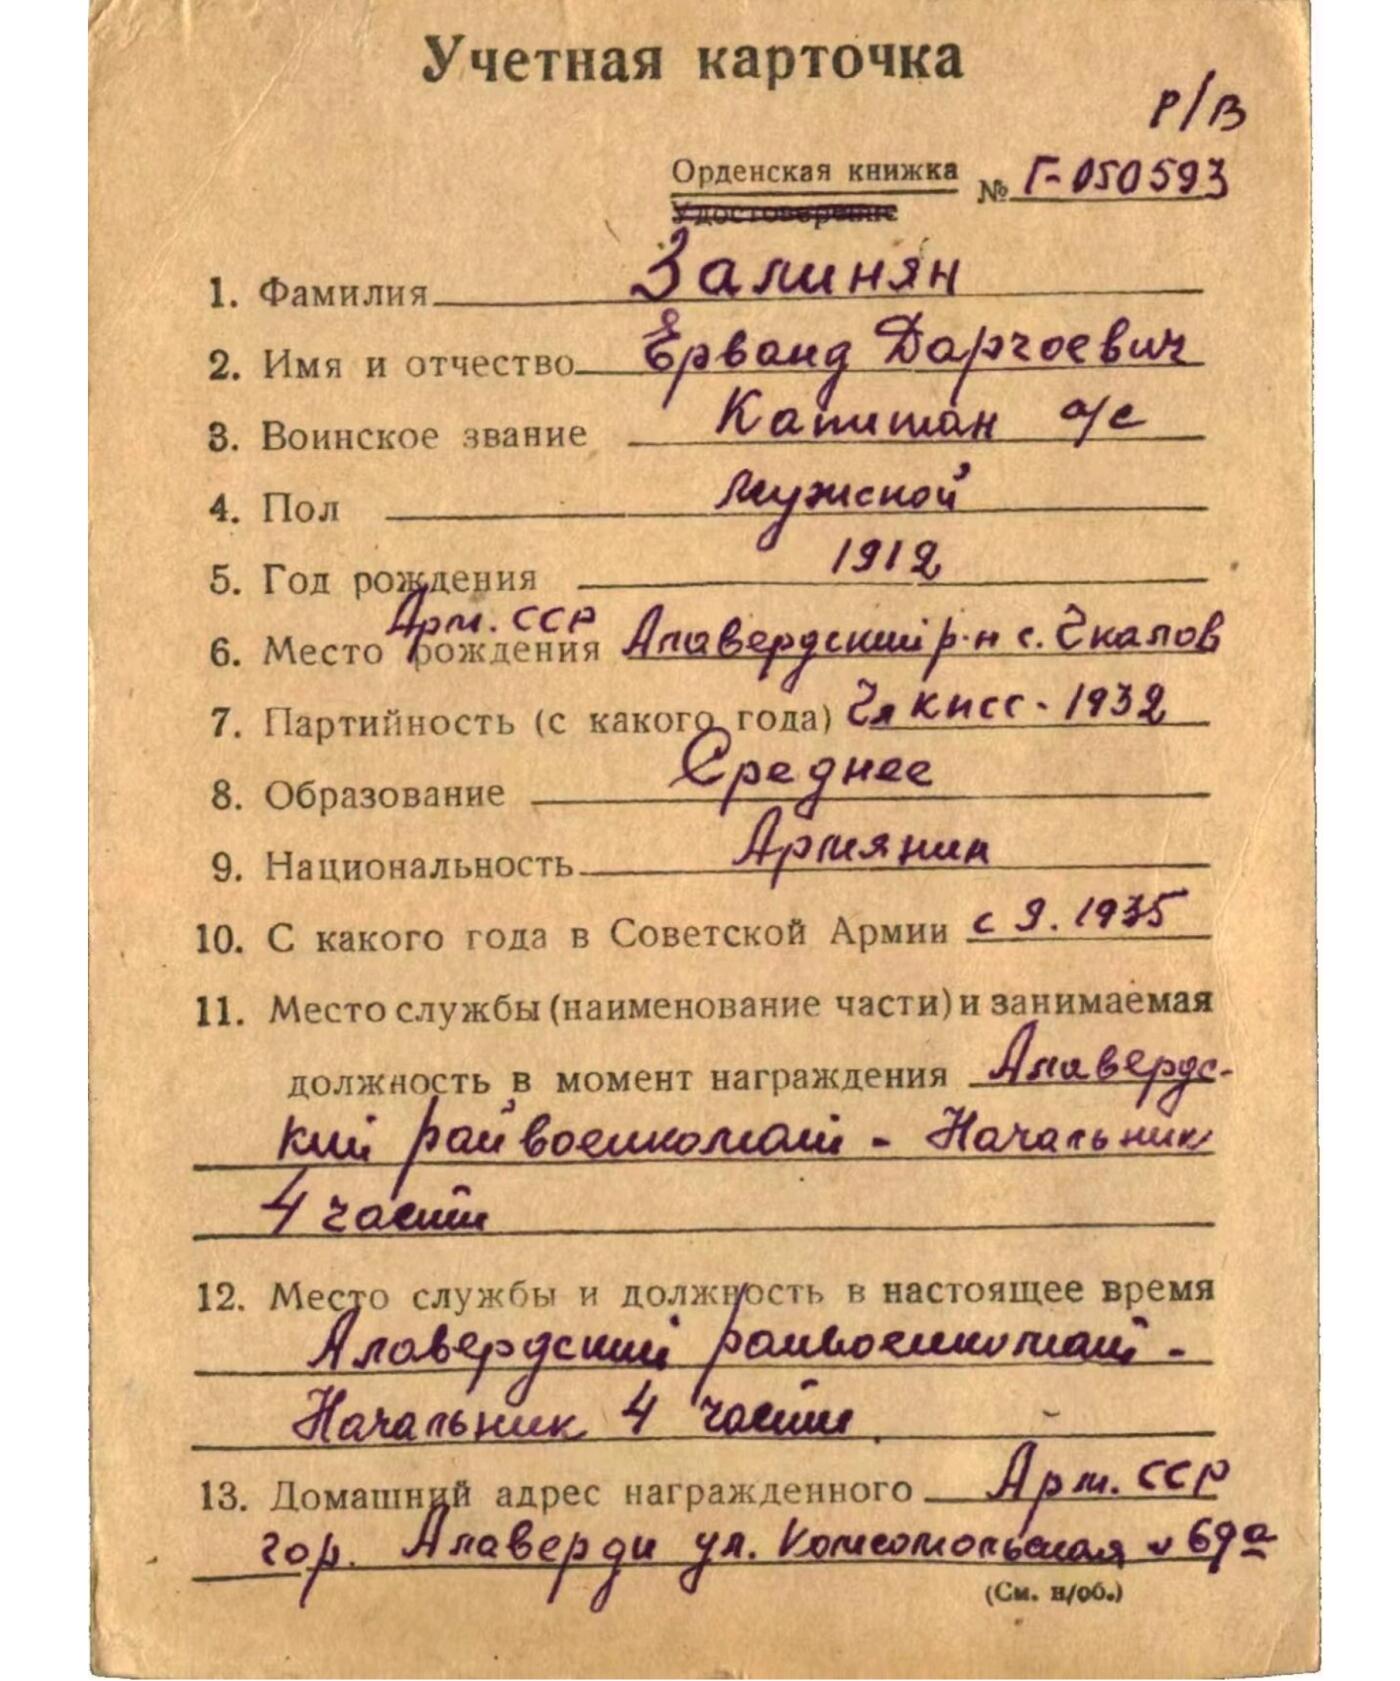 Учетная карточка
Р/В
Орденская книжка № Г-050593
Удостоверение
1. Фамилия Залинян
2. Имя и отчество Ерванд Дарчоевич
3. Воинское звание Капитан а/с
4. Пол Мужской
5. Год рождения 1912
Арм. ССР
6. Место рождения Алавердский р-н с. Чкалов
7. Партийность (с какого года) Чл КПСС - 1932
8. Образование Среднее
9. Национальность Армянин
10. С какого года в Советской Армии с 9. 1935
11. Место службы (наименование части) и занимаемая
должность в момент награждения Алавердс-
кий райвоенкомат - Начальник
4 части
12. Место службы и должность в настоящее время
Алавердский райвоенкомат -
Начальник 4 части
13. Домашний адрес награжденного Арм. ССР
гор. Алаверди ул. Комсомольская № 69а
(См. н/об.)